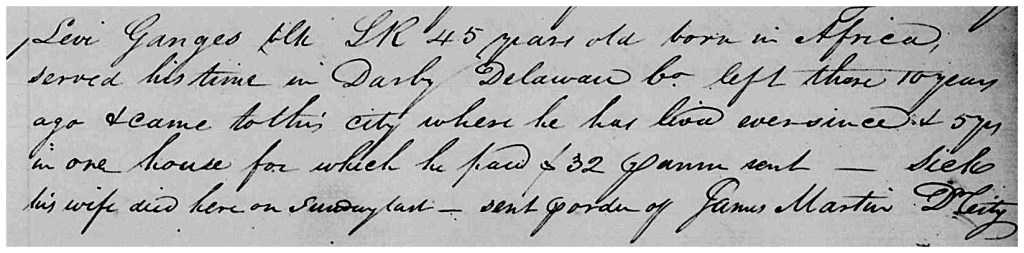 Levi Ganges blk LR 45 years old born in Africa,
served his time in Darby Delaware Co. left there 10 years
ago & came to this city where he has lived ever since & 5 yrs
in one house for which he paid $32 p annm rent — Sick
his wife died here on Sunday last — sent p order of James Martin Dr City